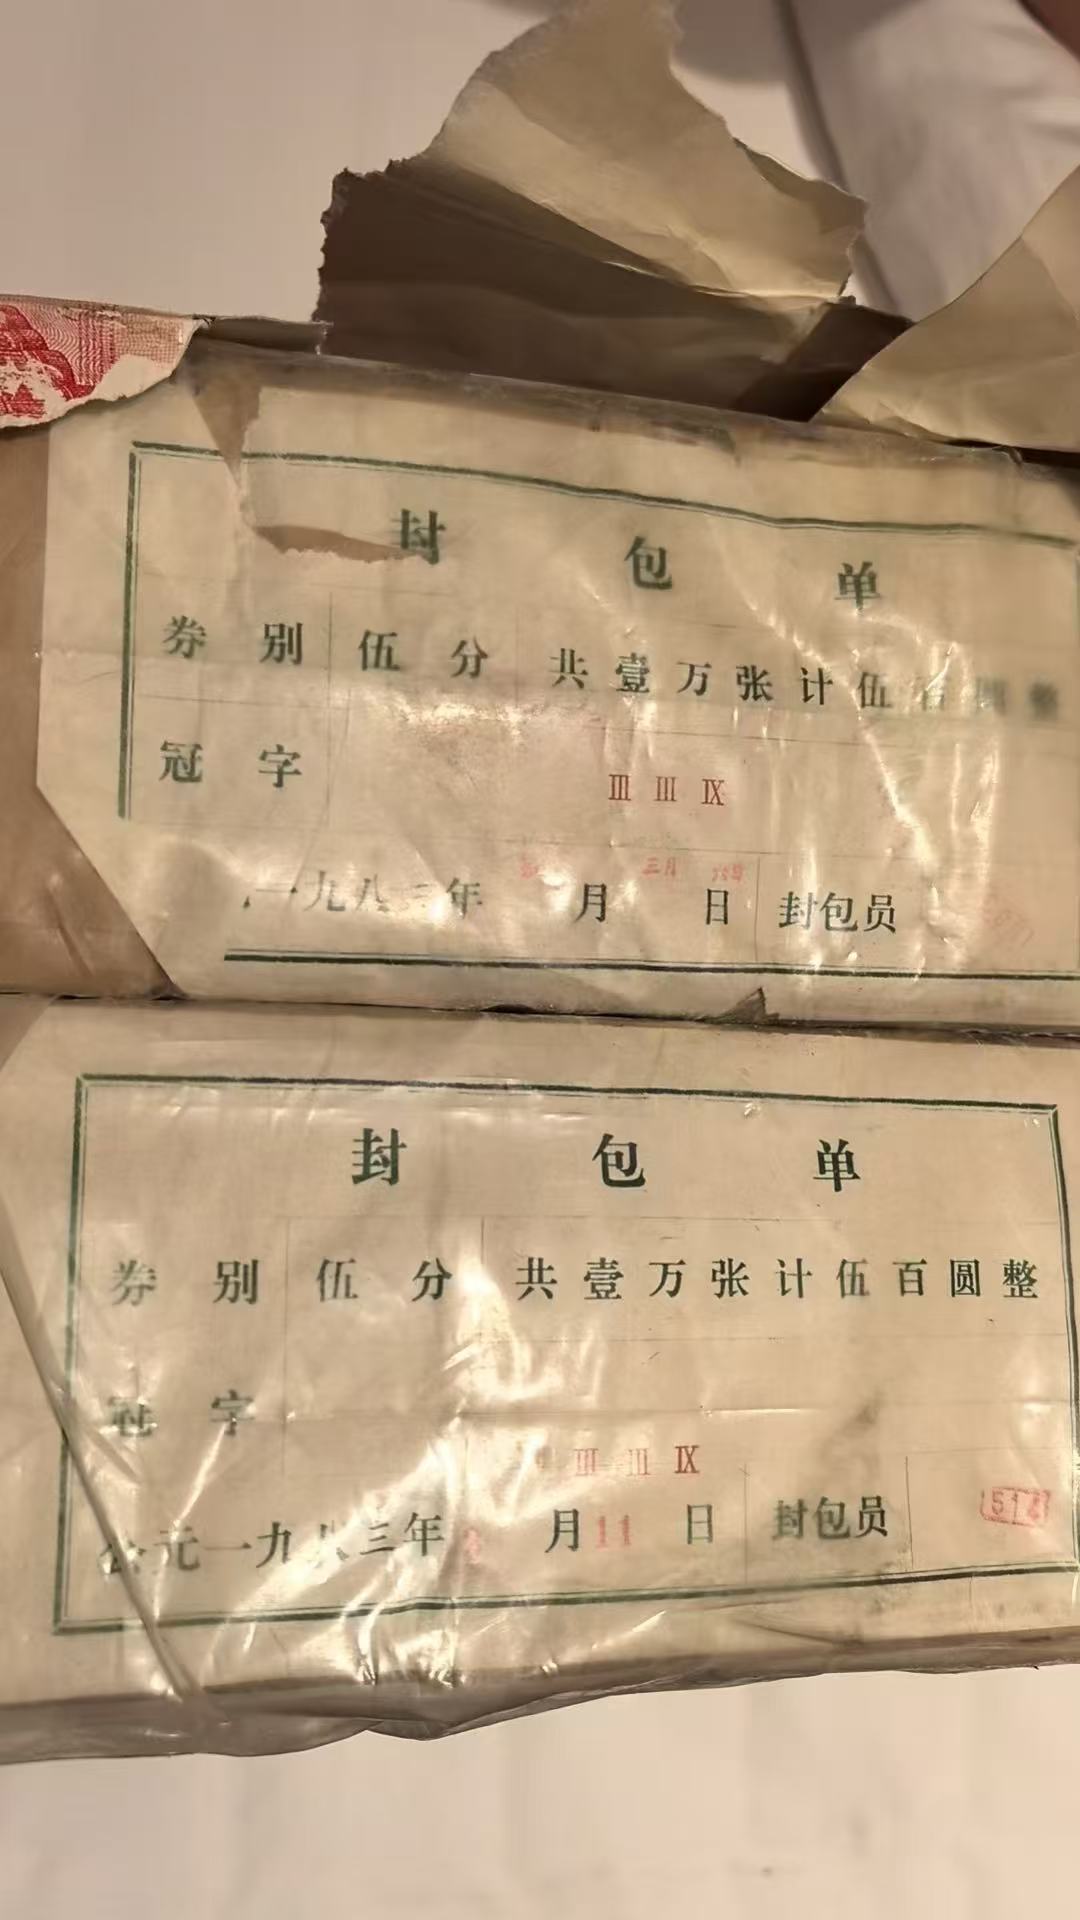 封包单
券别 伍分 共壹万张计伍百圆整
冠字
III III IX
三月
一九八 年 月 日 封包员
封包单
券别 伍分 共壹万张计伍百圆整
冠字
III III IX
公元一九八三年 月11日 封包员 514